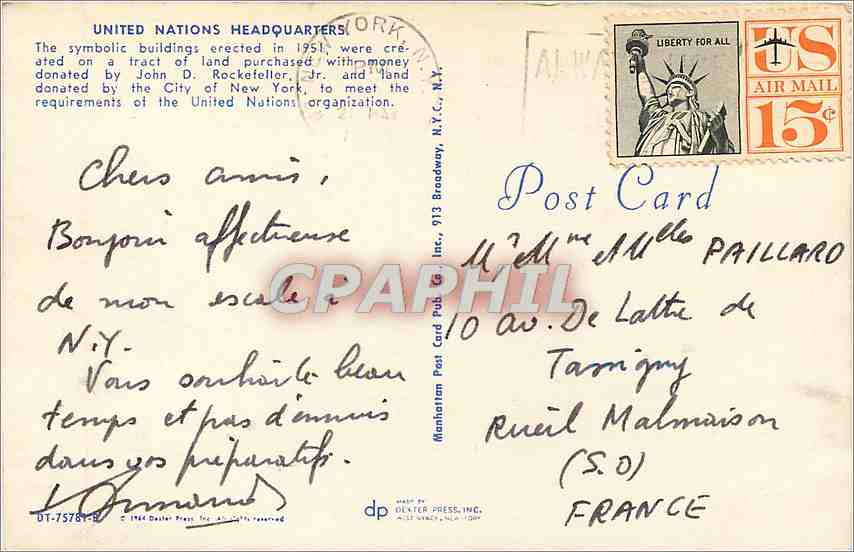 UNITED NATIONS HEADQUARTERS
The symbolic buildings erected in 1951, were cre-
ated on a tract of land purchased with money
donated by John D. Rockefeller, Jr. and land
donated by the City of New York, to meet the
requirements of the United Nations organization.
NEW YORK, N.Y.
ALWA
LIBERTY FOR ALL
US
AIR MAIL
15¢
Chers amis,
Bonjour affectueuse
de mon escale à
N.Y.
Vous souhaite beau
temps et pas d'ennuis
dans vos préparatifs.
DT-75781-B
© 1964 Dexter Press, Inc. All rights reserved
Manhattan Post Card Pub. Co., Inc., 913 Broadway, N.Y.C., N.Y.
CPAPHIL
dp
MADE BY
DEXTER PRESS, INC.
WEST NYACK, NEW YORK
Post Card
M. et Mme et Melles PAILLARD
10 av. De Lattre de
Tassigny
Rueil Malmaison
(S.O)
FRANCE